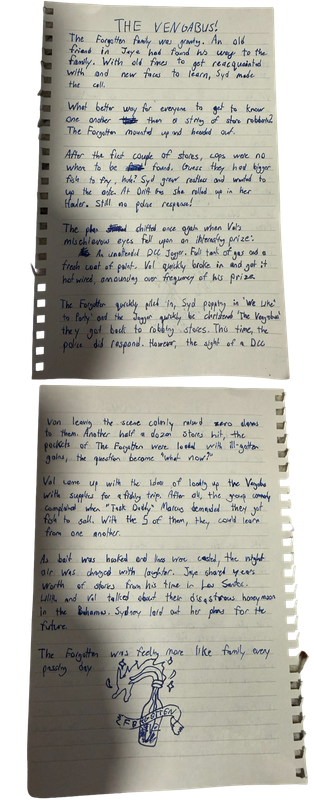 THE VENGABUS!
The Forgotten family was growing. An old
friend in Jaye had found his way to the
family. With old faces to get reacquainted
with and new faces to learn, Syd made
the call.
What better way for everyone to get to know
one another than a string of store robberies?
The Forgotten mounted up and headed out.
After the first couple of stores, cops were no
where to be found. Guess they had bigger
fish to fry, huh? Syd grew restless and wanted to
up the ante. At Drift she rolled up in her
Still no police response!
The plan shifted once again when Val's
mischievous eyes fell upon an interesting prize:
An unattended DCC Jogger. Full tank of gas and a
fresh coat of paint. Val quickly broke in and got it
hotwired, announcing over frequency of his prize.
The Forgotten quickly piled in, Syd popping in 'We Like
to Party' and the Jogger quickly be christened 'The Vengabus'
they got back to robbing stores. This time, the
police did respond. However, the sight of a DCC
van leaving the scene calmly raised zero alarms
to them. Another half a dozen stores hit, the
pockets of The Forgotten were loaded with ill-gotten
gains, the question became "what now?"
Val came up with the idea of loading up the Vengabus
with supplies for a fishing trip. After all, the group
complained when "Task Daddy" Marcus demanded they got
fish to sell. With the 5 of them, they could learn
from one another.
As bait was hooked and lines were casted, the night
air was charged with laughter. Jaye shared years
worth of stories from his time in Los Santos.
Lilith and Val talked about their disastrous honeymoon
in the Bahamas. Sydney laid out her plans for the
future.
The Forgotten was feeling more like family every
passing day.
FORGOTTEN